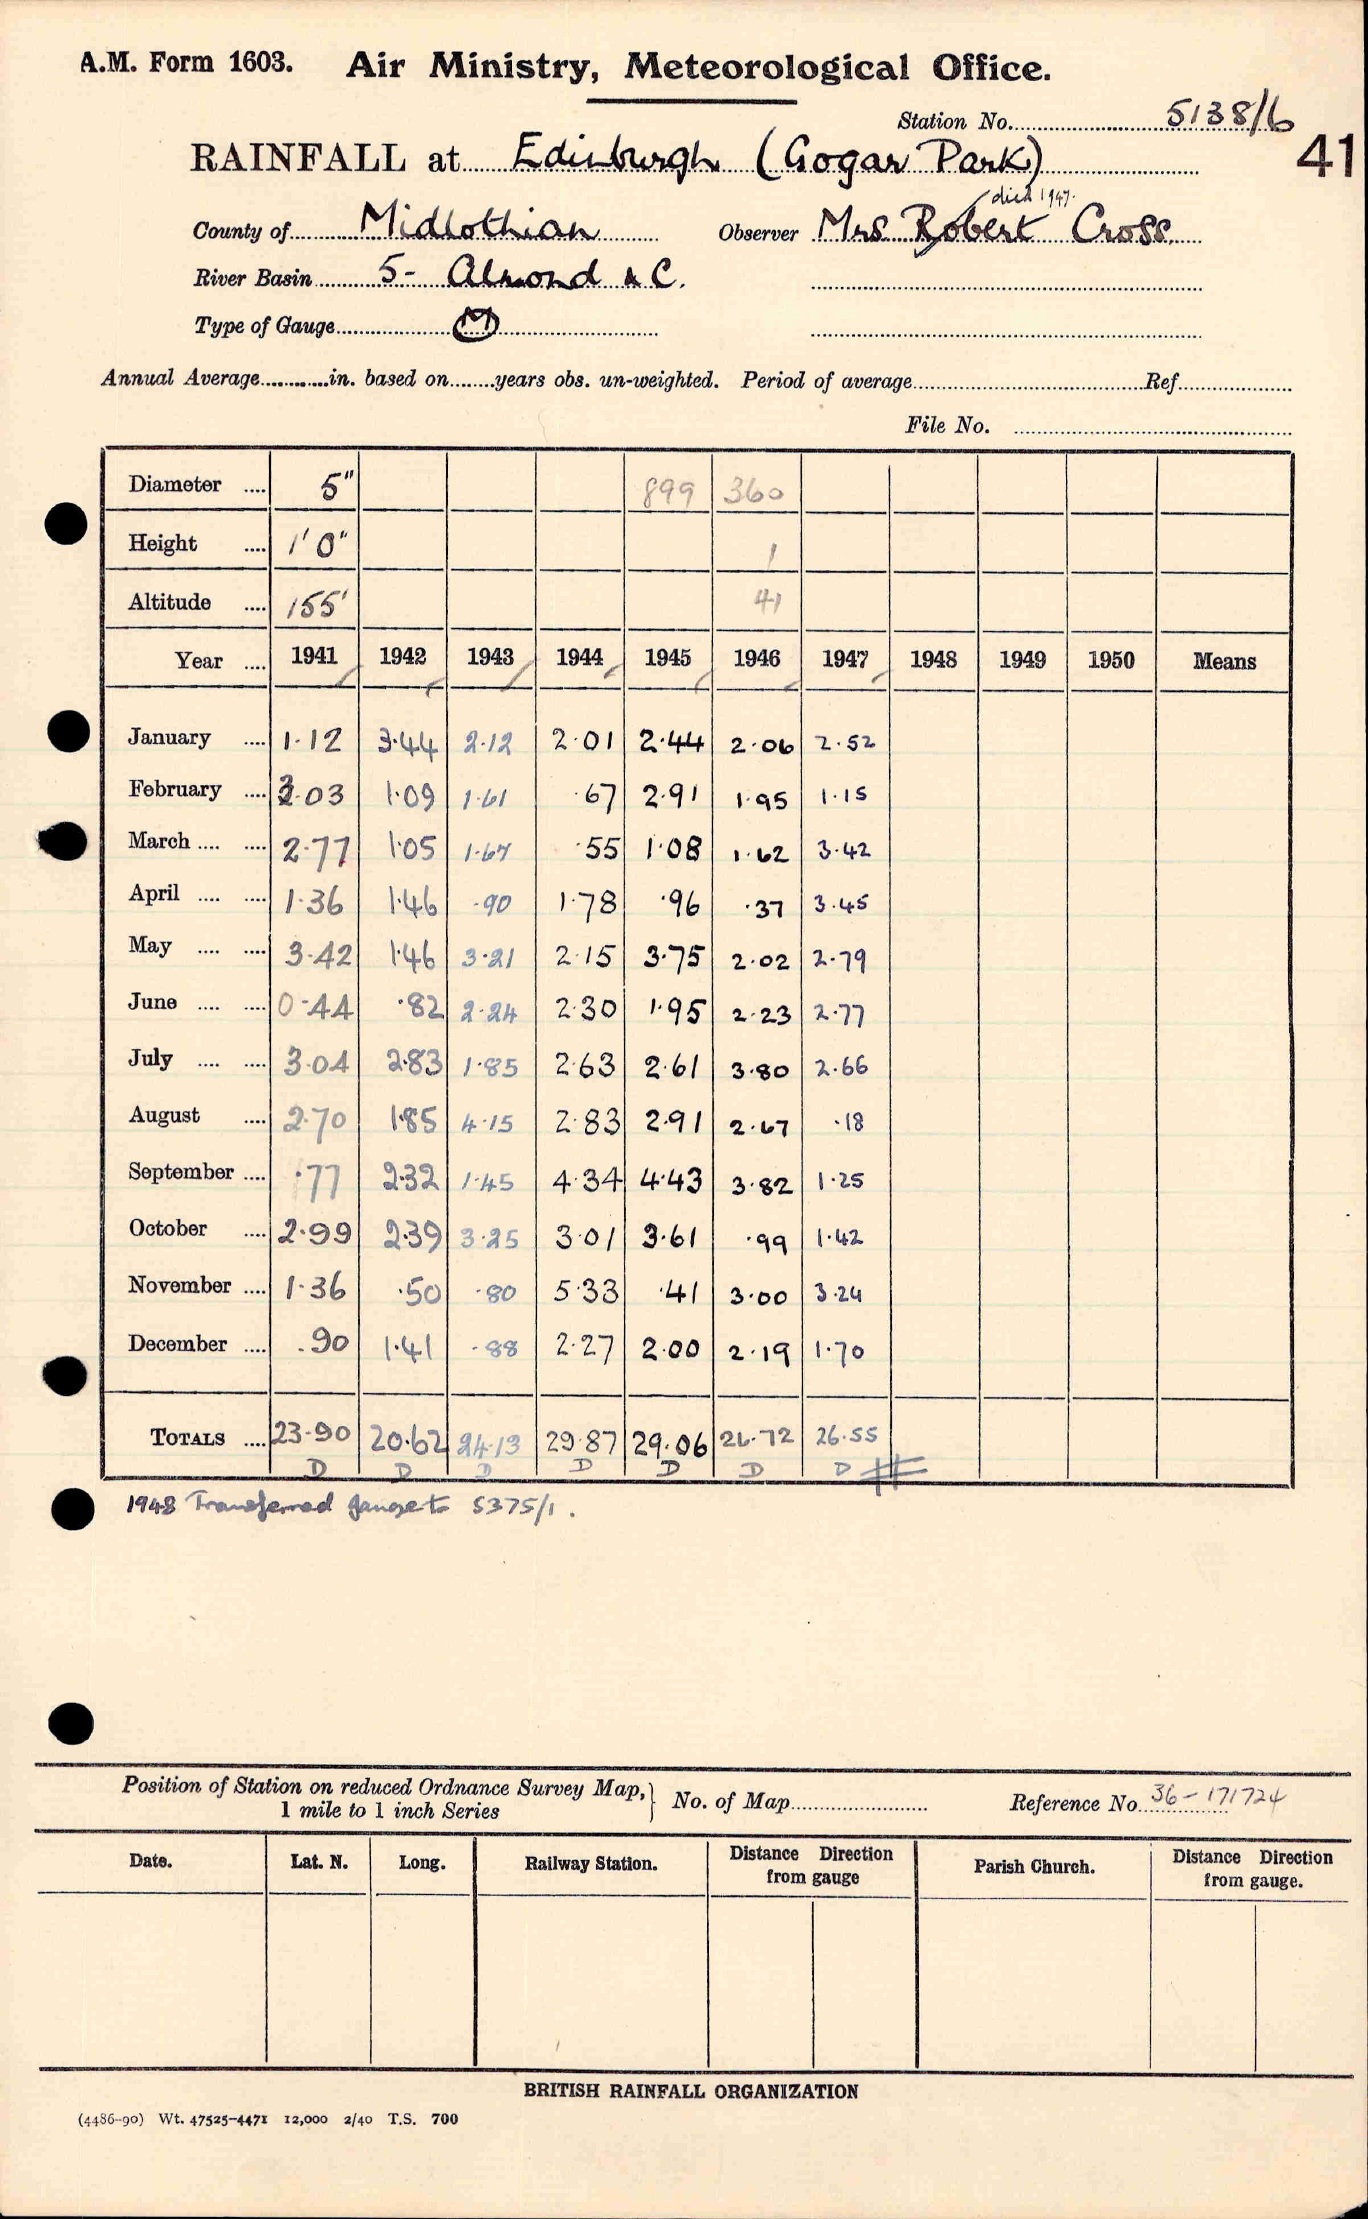 A.M. Form 1603. Air Ministry, Meteorological Office.
Station No. 5138/6
RAINFALL at Edinburgh (Gogar Park) 41
died 1947.
County of Midlothian Observer Mrs Robert Cross
River Basin 5- Almond &C.
Type of Gauge M
Annual Average in. based on years obs. un-weighted. Period of average Ref.
File No.
Diameter 5" 899 360
Height 1'0" 1
Altitude 155' 41
Year 1941 1942 1943 1944 1945 1946 1947 1948 1949 1950 Means
January 1.12 3.44 2.12 2.01 2.44 2.06 2.52
February 3.03 1.09 1.61 .67 2.91 1.95 1.15
March 2.77 1.05 1.67 .55 1.08 1.62 3.42
April 1.36 1.46 .90 1.78 .96 .37 3.45
May 3.42 1.46 3.21 2.15 3.75 2.02 2.79
June 0.44 .82 2.24 2.30 1.95 2.23 2.77
July 3.04 2.83 1.85 2.63 2.61 3.80 2.66
August 2.70 1.85 4.15 2.83 2.91 2.67 .18
September .77 2.32 1.45 4.34 4.43 3.82 1.25
October 2.99 2.39 3.25 3.01 3.61 .99 1.42
November 1.36 .50 .80 5.33 .41 3.00 3.24
December .90 1.41 .88 2.27 2.00 2.19 1.70
TOTALS 23.90 20.62 24.13 29.87 29.06 26.72 26.55
D D D D D D D
1948 Transferred gauge to 5375/1.
Position of Station on reduced Ordnance Survey Map, 1 mile to 1 inch Series } No. of Map Reference No. 36-171724
Date. Lat. N. Long. Railway Station. Distance Direction from gauge Parish Church. Distance Direction from gauge.
BRITISH RAINFALL ORGANIZATION
(4486-90) Wt. 47525-4471 12,000 2/40 T.S. 700